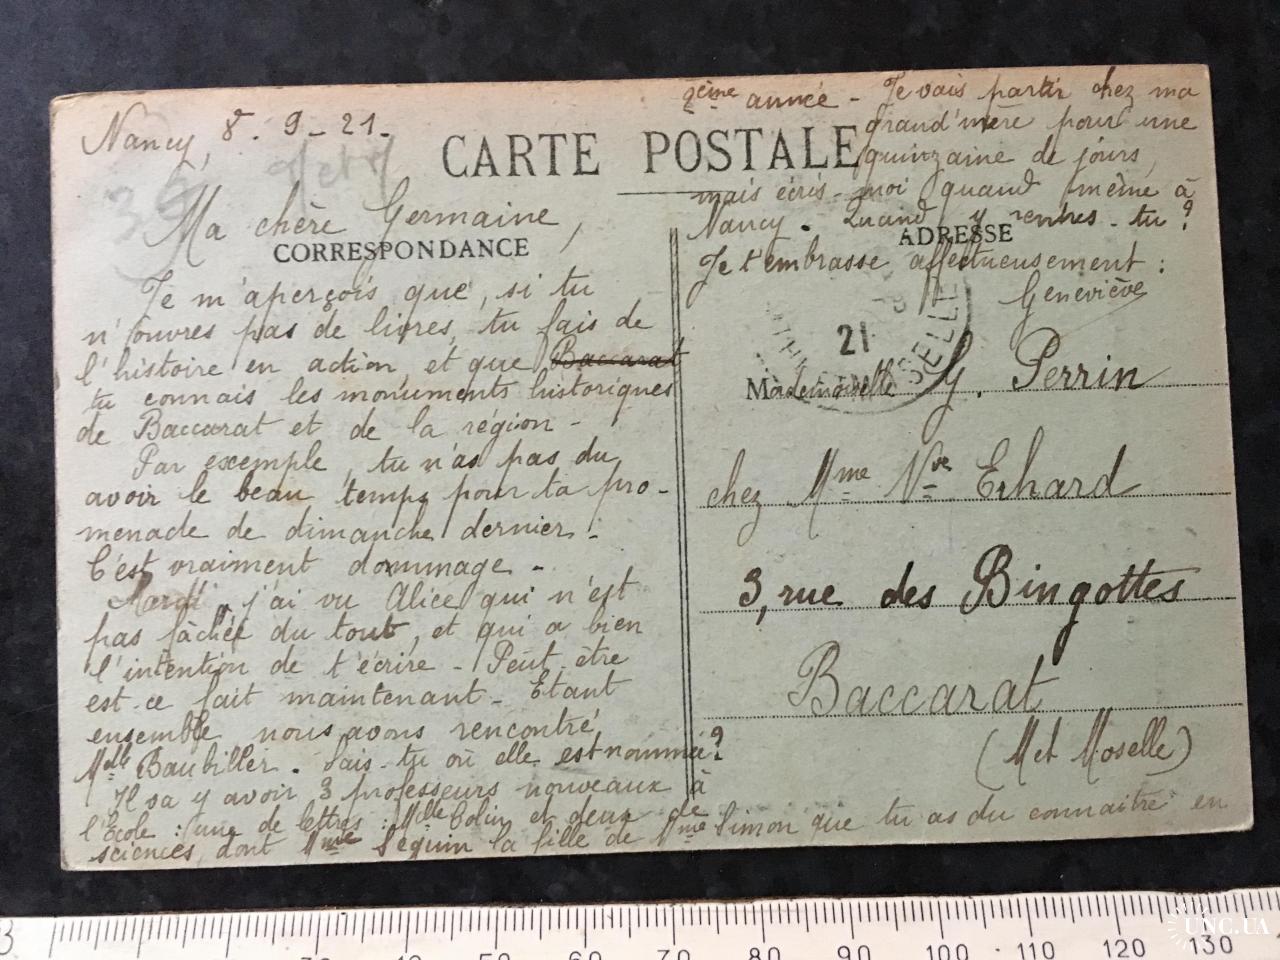 Nancy, 8-9-21-
CARTE POSTALE
Ma chère Germaine,
CORRESPONDANCE
Je m'aperçois que, si tu
n'ouvres pas de livres, tu fais de
l'histoire en action, et que Baccarat
tu connais les monuments historiques
de Baccarat et de la région -
Par exemple, tu n'as pas du
avoir le beau temps pour ta pro-
menade de dimanche dernier :
C'est vraiment dommage -
Mardi, j'ai vu Alice qui n'est
pas fâchée du tout, et qui a bien
l'intention de t'écrire - Peut-être
est-ce fait maintenant - Etant
ensemble nous avons rencontré
Melle Baubiller. Sais-tu où elle est nommée ?
Il va y avoir 3 professeurs nouveaux à
l'Ecole : une de lettres : Melle Colin et deux de
sciences, dont Mme Séguin la fille de Mme Simon que tu as du connaitre en
2ème année - Je vais partir chez ma
grand'mère pour une
quinzaine de jours,
mais écris-moi quand même à
Nancy. Quand y rentres-tu ?
ADRESSE
Je t'embrasse affectueusement :
Geneviève
21
SELLE
Mademoiselle G. Perrin
chez Mme Vve Erhard
3, rue des Bingottes
Baccarat
(Met Moselle)
30 40 50 60 70 80 90 100 110 120 130
UNC.UA